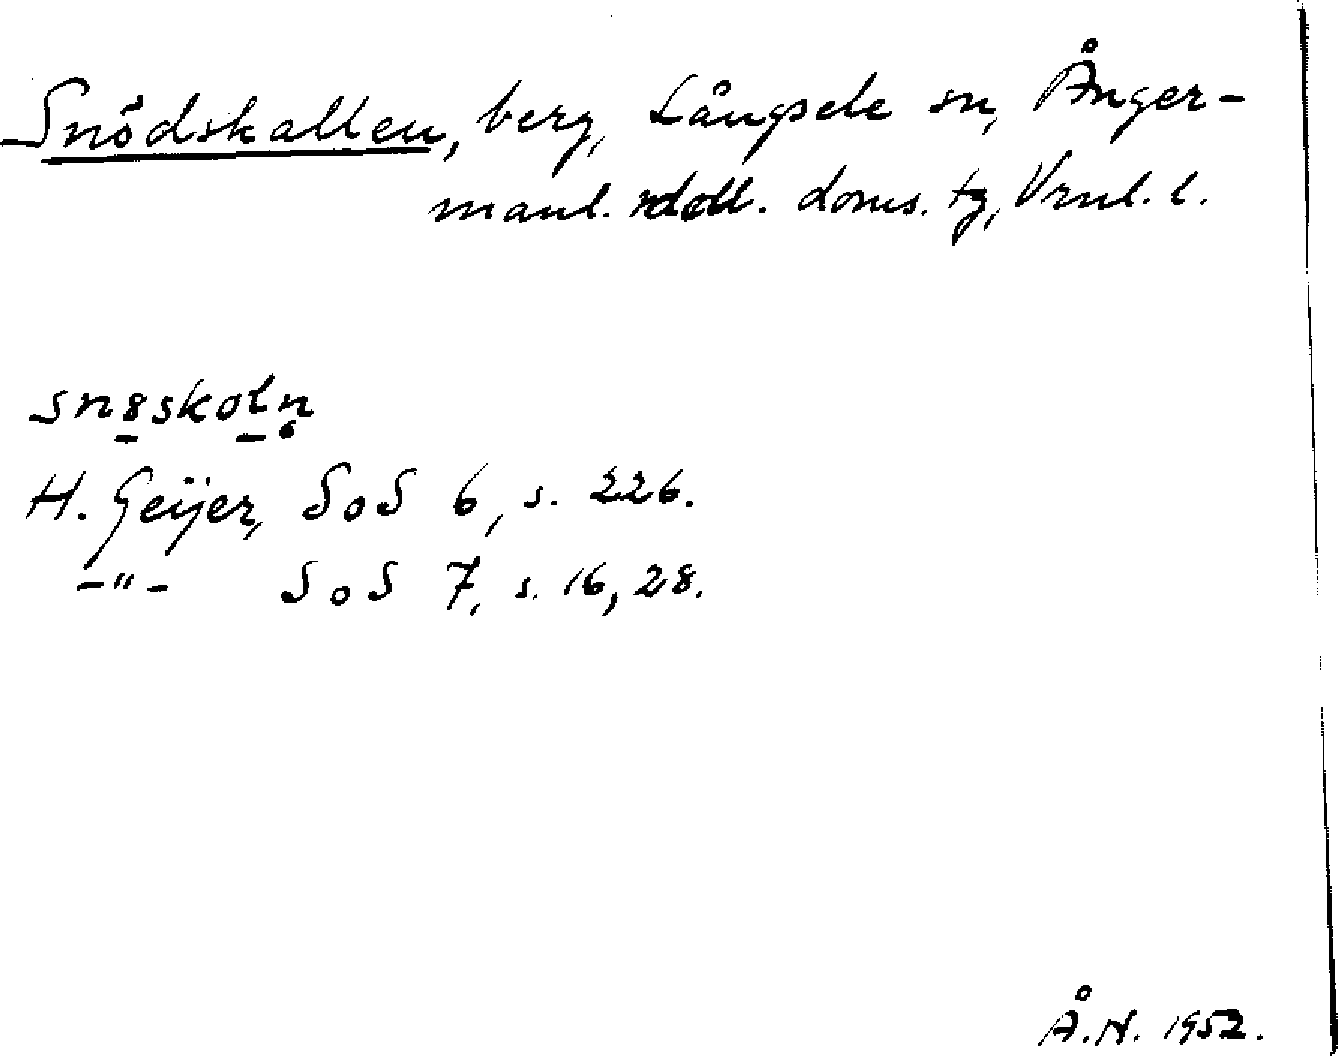 Snödskallen, berg, Långsele sn, Ånger-
manl. vdstl. doms. tg, Vrnl. l.
sn8skołn̥
H. Geijer, SoS 6, s. 226.
-"- SoS 7, s. 16, 28.
Å.N. 1952.